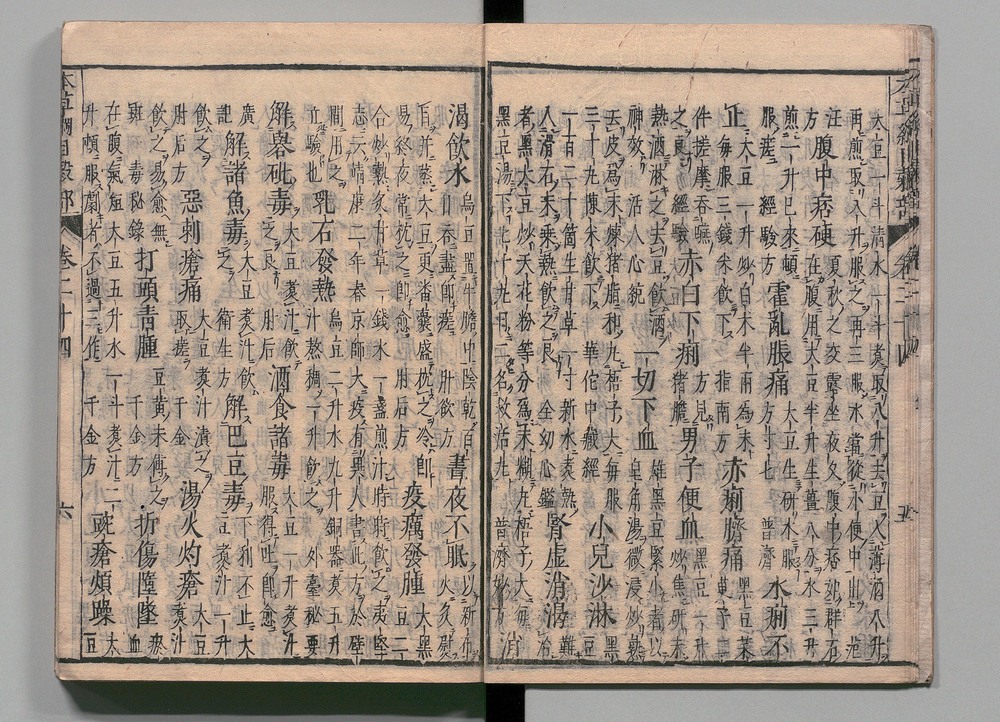 本草綱目穀部 卷二十四 五
大豆一斗清水一斗煮取八升去豆入薄酒八升再煎取八升服之再三服水當從小便中出 范
汪方 腹中痞硬 夏秋之交露坐夜久腹中痞如群石在腹用大豆半升生薑八分水三升
煎一升已來頓服瘥 經驗方 霍亂脹痛 大豆生研水服方寸匕 普濟 水痢不
止 大豆一升炒白朮半兩爲末每服三錢米飲下 指南方 赤痢臍痛 黑豆茱萸子二
件搓摩吞嚥之良 經驗 赤白下痢 方見猪膽 男子便血 黑豆一升炒焦研末
熱酒淋之去豆飲酒神效 活人心統 一切下血 雄黑豆緊小者以皂角湯微浸炒熟
去皮爲末煉猪脂和丸梧子大每服三十丸陳米飲下 華佗中藏經 小兒沙淋 黑豆
一百二十箇生甘草一寸新水煮熱入滑石末乘熱飲之良 全幼心鑑 腎虚消渴 難治
者黑大豆炒天花粉等分爲末糊丸梧子大每黑豆湯下七十丸日二名救活丸 普濟妙方 消
渴飲水 烏豆置牛膽中陰乾百日吞盡即瘥 肘飲方 晝夜不眠 以新布火炙熨
目并蒸大豆更番囊盛枕之冷即易終夜常枕之即愈 肘后方 疫癘發腫 大黑豆二
合炒熱炙甘草一錢水一盞煎汁時時飲之夷堅志云靖康二年春京師大疫有異人書此方於壁
間用之立驗也 乳石發熱 烏豆二升水九升銅器煮五升汁熬稠一升飲之 外臺秘要
解礜砒毒 大豆煮汁飲之良 肘后 酒食諸毒 大豆一升煮汁服得吐即愈
廣記 解諸魚毒 大豆煮汁飲之 衛生方 解巴豆毒 下利不止大豆煮汁一升
飲之 肘后方 惡刺瘡痛 大豆煮汁漬之取瘥 千金方 湯火灼瘡 大豆煮汁
飲之易愈無斑 子毒秘錄 打頭青腫 豆黄末傅之 千金方 折傷墮墜 瘀血
在腹氣短大豆五升水一斗煮汁二升頓服劇者不過三作 千金方 豌瘡煩躁 大豆
本草綱目穀部 卷二十四 六